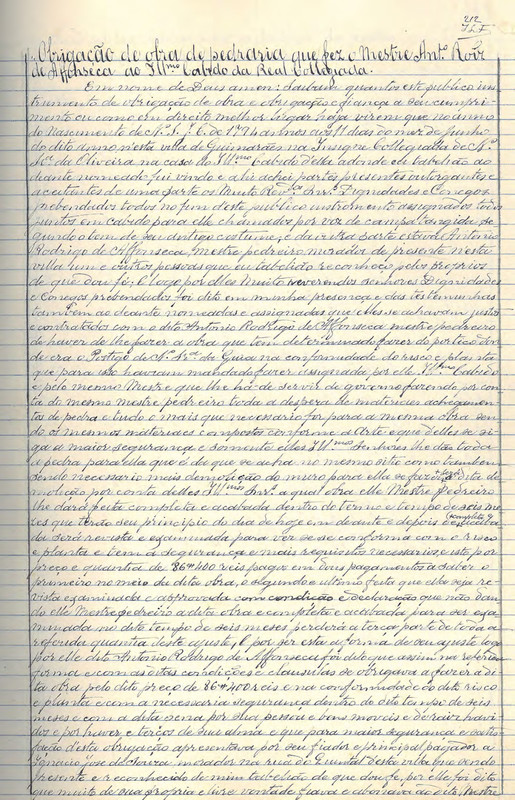 212
Obrigação de obra de pedraria que fez o Mestre Antº Roiz
de Affonseca ao Illmo Cabido da Real Collegiada.
Em nome de Deus amen: saibam quantos este publico ins-
trumento de obrigação de obra e obrigação e fiança a seu cumpri-
mento ou como em direito melhor lugar haja virem que no anno
do Nascimento de N. S. J. C. de 17 annos aos 11 dias do mez de Junho
do dito anno n'esta villa de Guimarães na Insigne Collegiada de N.
Srª da Oliveira na casa do Illmo Cabido della adonde eu tabelião ao
deante nomeado fui vindo e ahi achei partes presentes outorgantes e
aceitantes de uma parte os Muito Revdos Snrs Dignidades e Conegos
prebendados todos no fim deste publico instromento assignados todos
juntos em cabido para elle chamados por voz de campa tangida se-
gundo o bom de seu antigo costume, e da outra parte estava Antonio
Rodrigo de Affonseca, mestre pedreiro morador de presente nesta
villa uns e outros pessoas que eu tabelião reconheço pelos proprios
de que dou fé; E logo por elles Muito reverendos senhores Dignidades
e Conegos prebendados foi dito em minha presença e das testemunhas
tambem ao deante nomeadas e assignadas que elles se achavam justos
e contratados com o dito Antonio Rodrigo de Affonseca mestre pedreiro
de haver de lhe fazer a obra que tem determinado fazer do portico don-
de era o Postigo de N. Srª da Guia na conformidade do risco e planta
que para isso haviam mandado fazer assignada por elle Illmo Cabido
e pelo mesmo Mestre que lhe há-de servir de governo fazendo por con-
ta do mesmo mestre pedreiro toda a despeza de materiaes achegamen-
tos de pedra e tudo o mais que necessario for para a mesma obra sen-
do os mesmos materiaes compostos conforme a Arte e que d'elles se si-
ga a maior segurança e somente elles Illmos Senhores lhe dão toda
a pedra para ella que é da que se acha no mesmo sitio como tambem
sendo necessario mais demolição do muro para ella se fazer será dita de-
molição por conta delles Illmos Snrs a qual obra elle Mestre Pedreiro
lhe dará feita completa e acabada dentro do termo e tempo de seis me-
zes que terão seu principio do dia de hoje em deante e depois de acaba-
da será revista e examinada para ver se se conforma com o risco
e planta e tem a segurança e mais requisitos necessarios e isto por
preço e quantia de 86#400 reis pagos em dous pagamentos a saber o
primeiro no meio da dita obra, o segundo e ultimo feita que ella seja re-
vista examinada e approvada com condição e declaração que não dan-
do elle Mestre pedreiro a dita obra e completa e acabada para ser exa-
minada no dito tempo de seis mezes perderá a terça parte de toda a
referida quantia deste ajuste, E por ser esta a forma do seu ajuste logo
por elle dito Antonio Rodrigo de Affonseca foi dito que assim na referida
forma e com as ditas condições e clausulas se obrigava a fazer a di-
ta obra pelo dito preço de 86#400 reis e na conformidade do dito risco
e planta e com a necessaria segurança dentro do dito tempo de seis
mezes e com a dita pena por sua pessoa e bens moveis e de raiz havi-
dos e por haver e terços de sua alma e que para maior segurança e satis-
fação d'esta obrigação apresentava por seu fiador e principal pagador a
Ignacio José de Souza, morador na rua do desta villa que sendo
presente e reconhecido de mim tabelião de que dou fé, por elle foi dito
que muito de sua propria e livre vontade fiava e abonava ao dito Mestre